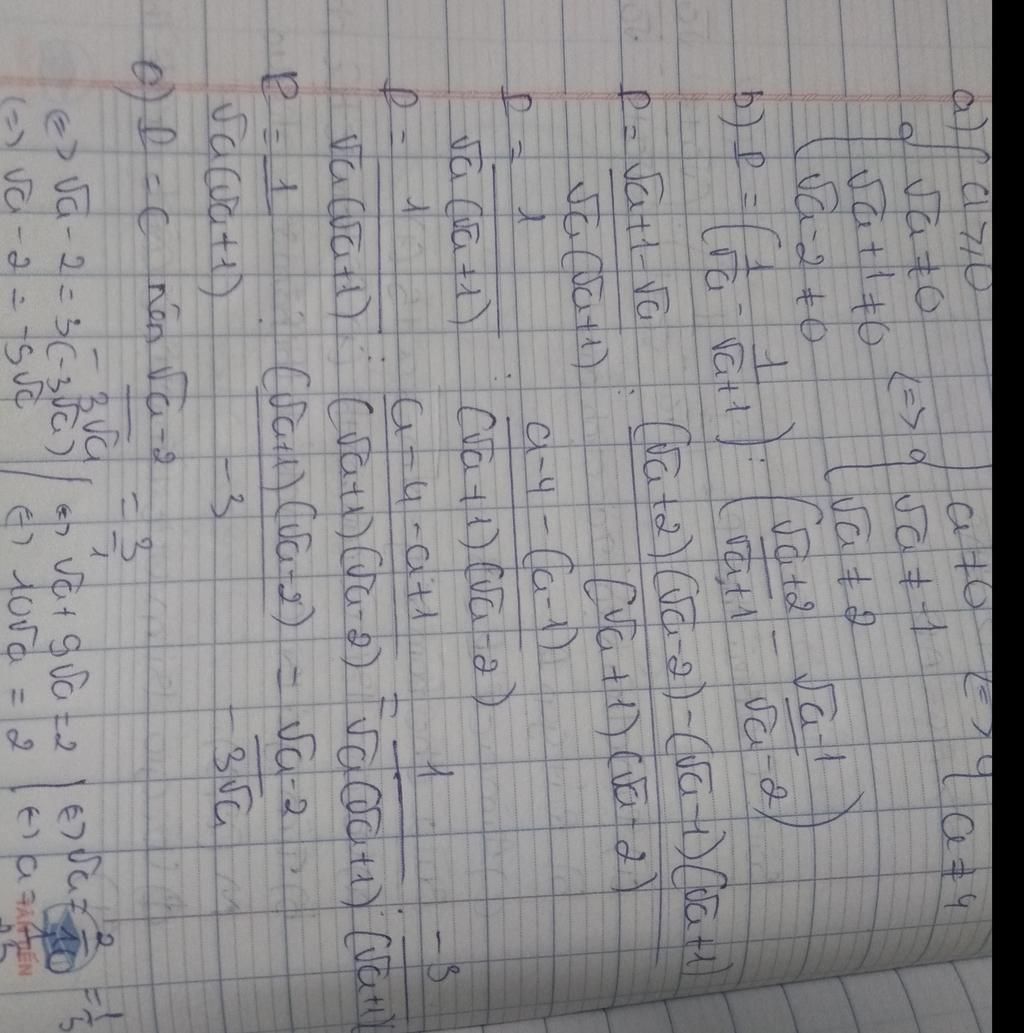 a) { a ≥ 0
√a ≠ 0
√a + 1 ≠ 0
√a - 2 ≠ 0
<=> { a ≠ 0
√a ≠ -1
√a ≠ 2
<=> { a ≠ 4
b) P = (1/√a - 1/√a+1) : (√a+2/√a+1 - √a-1/√a-2)
P = √a+1-√a/√a(√a+1) : (√a+2)(√a-2)-(√a-1)(√a+1)/(√a+1)(√a-2)
P = 1/√a(√a+1) : a-4-(a-1)/(√a+1)(√a-2)
P = 1/√a(√a+1) : a-4-a+1/(√a+1)(√a-2) = 1/√a(√a+1) : -3/(√a+1)
P = 1/√a(√a+1) . (√a+1)(√a-2)/-3 = √a-2/-3√a
c) P = C nên √a-2/-3√a = 3/1
<=> √a-2 = 3(-3√a) | <=> √a+9√a=2 | <=> √a = 2/10 = 1/5
<=> √a-2 = -9√a | <=> 10√a = 2 | <=> a = 1/25
TÂN TIẾN